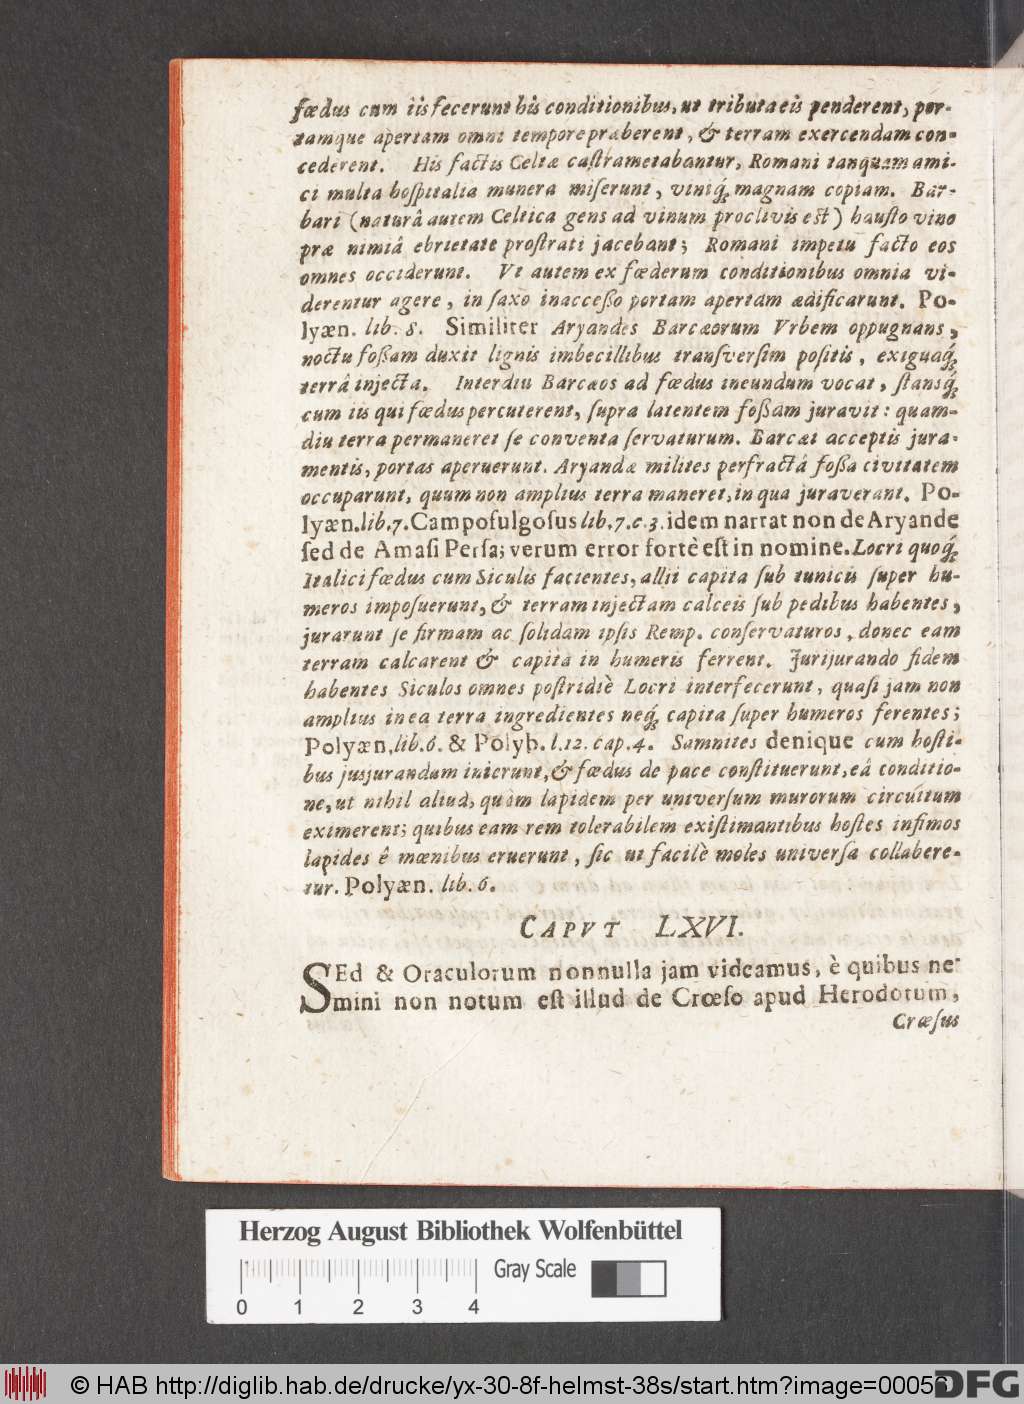 fœdus cum iis fecerunt his conditionibus, ut tributa eis penderent, por-
tamque apertam omni tempore præberent, & terram exercendam con-
cederent. His factis Celtæ caſtrametabantur, Romani tanquam ami-
ci multa hoſpitalia munera miſerunt, viniq́; magnam copiam. Bar-
bari (naturâ autem Celtica gens ad vinum proclivis eſt) hauſto vino
præ nimiâ ebrietate proſtrati jacebant; Romani impetu facto eos
omnes occiderunt. Vt autem ex fœderum conditionibus omnia vi-
derentur agere, in ſaxo inacceßo portam apertam ædificarunt. Po-
lyæn. lib. 8. Similiter Aryandes Barcæorum Vrbem oppugnans,
noctu foßam duxit lignis imbecillibus tranſverſim poſitis, exiguaq́;
terrâ injecta. Interdiu Barcæos ad fœdus ineundum vocat, ſtansq́;
cum iis qui fœdus percuterent, ſupra latentem foßam juravit: quam-
diu terra permaneret ſe conventa ſervaturum. Barcæi acceptis jura-
mentis, portas aperuerunt. Aryandæ milites perfractâ foßa civitatem
occuparunt, quum non amplius terra maneret, in qua juraverant. Po-
lyæn. lib. 7. Campofulgoſus lib. 7. c. 3. idem narrat non de Aryande
ſed de Amaſi Perſa; verum error fortè eſt in nomine. Locri quoq́;
Italici fœdus cum Siculis facientes, allii capita ſub tunicis ſuper hu-
meros impoſuerunt, & terram injectam calceis ſub pedibus habentes,
jurarunt ſe firmam ac ſolidam ipſis Remp. conſervaturos, donec eam
terram calcarent & capita in humeris ferrent. Jurijurando fidem
habentes Siculos omnes poſtridiè Locri interfecerunt, quaſi jam non
amplius in ea terra ingredientes neq́; capita ſuper humeros ferentes;
Polyæn. lib. 6. & Polyb. l. 12. cap. 4. Samnites denique cum hoſti-
bus jusjurandum inierunt, & fœdus de pace conſtituerunt, eâ conditio-
ne, ut nihil aliud, quàm lapidem per univerſum murorum circúitum
eximerent; quibus eam rem tolerabilem exiſtimantibus hoſtes infimos
lapides ê mœnibus eruerunt, ſic ut facilè moles univerſa collabere-
tur. Polyæn. lib. 6.
CAPVT LXVI.
SEd & Oraculorum nonnulla jam videamus, è quibus ne-
mini non notum eſt illud de Crœſo apud Herodotum,
Crœſus
Herzog August Bibliothek Wolfenbüttel
Gray Scale
0 1 2 3 4
© HAB http://diglib.hab.de/drucke/yx-30-8f-helmst-38s/start.htm?image=00056
DFG